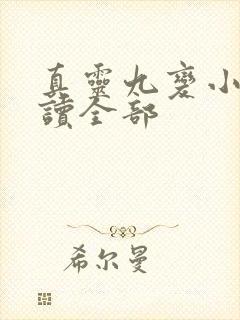 真靈九變小
讀全部
希尔曼